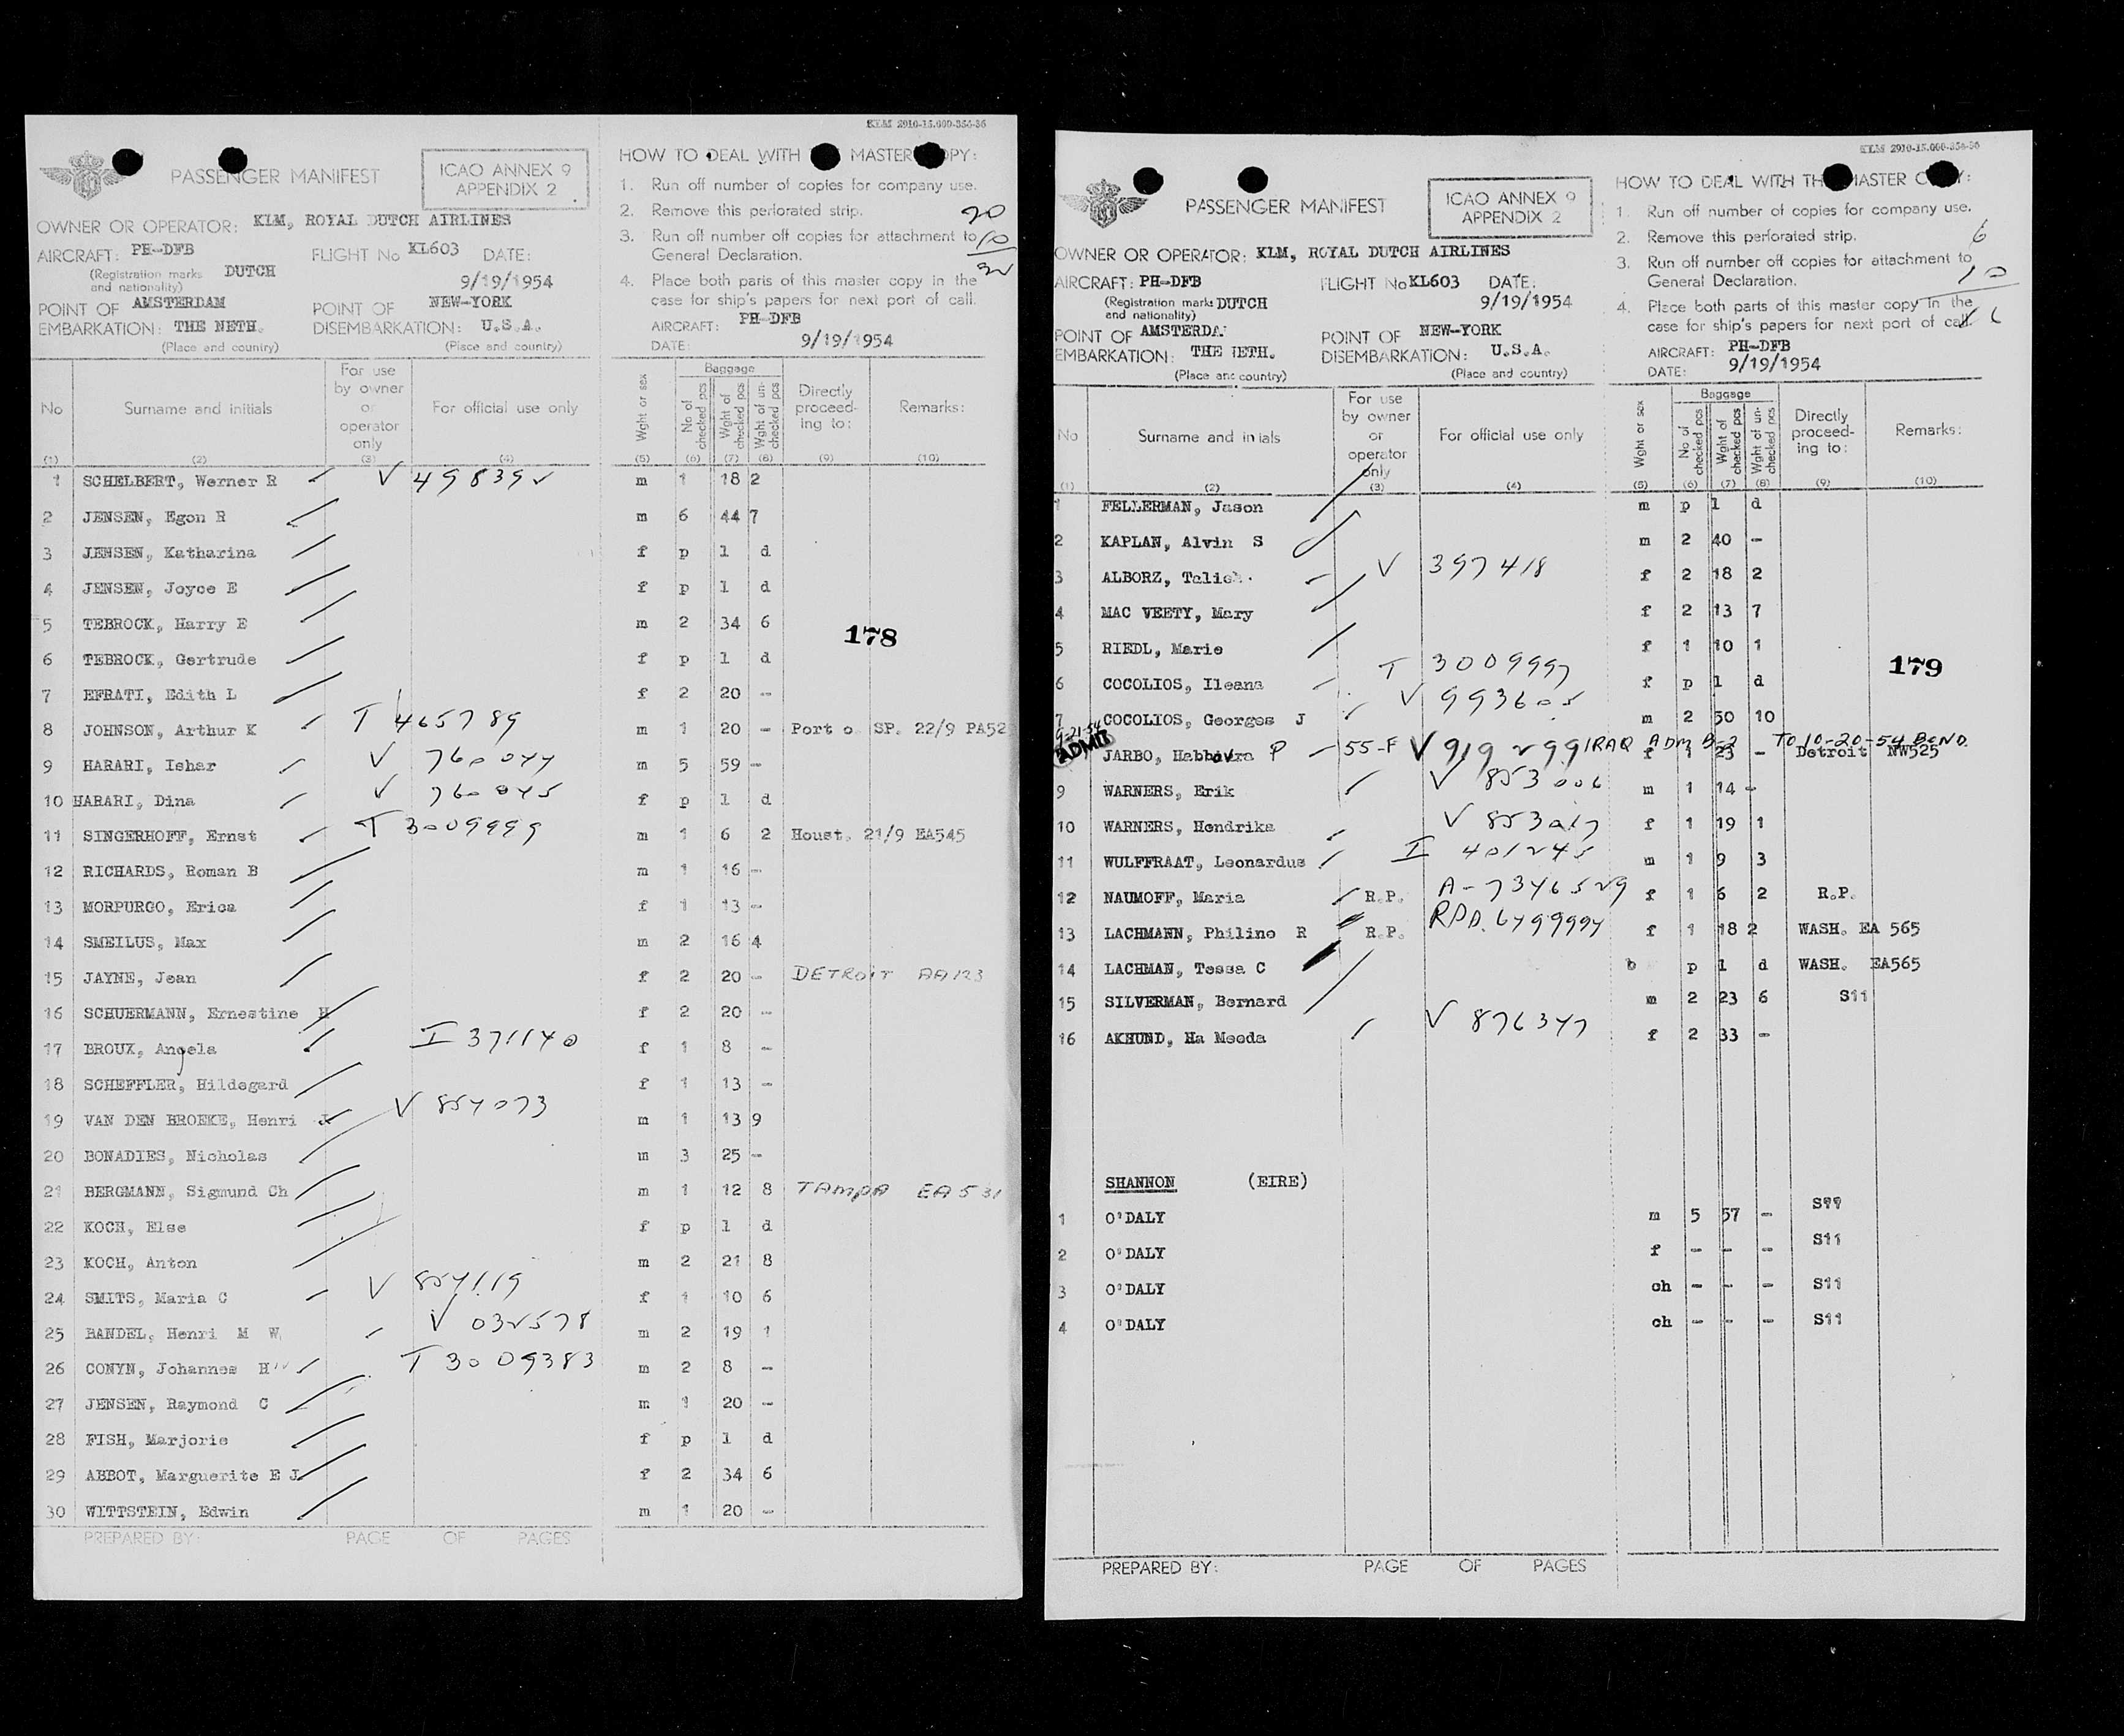 KLM 2910-15.000-354-36
PASSENGER MANIFEST
ICAO ANNEX 9
APPENDIX 2
OWNER OR OPERATOR: KLM, ROYAL DUTCH AIRLINES
AIRCRAFT: PH-DFB FLIGHT No KL603 DATE:
(Registration marks and nationality) DUTCH 9/19/1954
POINT OF EMBARKATION: AMSTERDAM THE NETH. POINT OF DISEMBARKATION: NEW-YORK U.S.A.
(Place and country) (Place and country)
HOW TO DEAL WITH MASTER COPY:
1. Run off number of copies for company use.
2. Remove this perforated strip.
3. Run off number off copies for attachment to
General Declaration.
4. Place both parts of this master copy in the
case for ship's papers for next port of call.
20
10
AIRCRAFT: PH-DFB
DATE: 9/19/1954
No Surname and initials For use by owner or operator only For official use only Wght or sex Baggage No of checked pcs Wght of checked pcs Wght of un-checked pcs Directly proceed-ing to: Remarks:
(1) (2) (3) (4) (5) (6) (7) (8) (9) (10)
1 SCHELBERT, Werner R V 498392 m 1 18 2
2 JENSEN, Egon R m 6 44 7
3 JENSEN, Katharina f p l d
4 JENSEN, Joyce E f p l d
5 TEBROCK, Harry E m 2 34 6
178
6 TEBROCK, Gertrude f p l d
7 EFRATI, Edith L f 2 20 -
8 JOHNSON, Arthur K T 465789 m 1 20 - Port o SP. 22/9 PA52
9 HARARI, Ishar V 760044 m 5 59 -
10 HARARI, Dina V 760045 f p l d
11 SINGERHOFF, Ernst T 3009999 m 1 6 2 Houst. 21/9 EA545
12 RICHARDS, Roman B m 1 16 -
13 MORPURGO, Erica f 1 13 -
14 SMEILUS, Max m 2 16 4
15 JAYNE, Jean f 2 20 - DETROIT AA123
16 SCHUERMANN, Ernestine H f 2 20 -
17 BROUX, Angela I 371140 f 1 8 -
18 SCHEFFLER, Hildegard f 1 13 -
19 VAN DEN BROEKE, Henri J V 854073 m 1 13 9
20 BONADIES, Nicholas m 3 25 -
21 BERGMANN, Sigmund Ch m 1 12 8 TAMPA EA 531
22 KOCH, Else f p l d
23 KOCH, Anton m 2 21 8
24 SMITS, Maria C V 854119 f 1 10 6
25 BANDEL, Henri M W V 032578 m 2 19 1
26 CONYN, Johannes H T 3009383 m 2 8 -
27 JENSEN, Raymond C m 1 20 -
28 FISH, Marjorie f p l d
29 ABBOT, Marguerite E J f 2 34 6
30 WITTSTEIN, Edwin m 1 20 -
PREPARED BY: PAGE OF PAGES
KLM 2910-15.000-354-36
PASSENGER MANIFEST
ICAO ANNEX 9
APPENDIX 2
OWNER OR OPERATOR: KLM, ROYAL DUTCH AIRLINES
AIRCRAFT: PH-DFB FLIGHT No KL603 DATE:
(Registration marks and nationality) DUTCH 9/19/1954
POINT OF EMBARKATION: AMSTERDA THE NETH. POINT OF DISEMBARKATION: NEW-YORK U.S.A.
(Place and country) (Place and country)
HOW TO DEAL WITH TH MASTER C Y:
1. Run off number of copies for company use.
2. Remove this perforated strip.
3. Run off number off copies for attachment to
General Declaration.
4. Place both parts of this master copy in the
case for ship's papers for next port of call.
6
10
16
AIRCRAFT: PH-DFB
DATE: 9/19/1954
No Surname and initials For use by owner or operator only For official use only Wght or sex Baggage No of checked pcs Wght of checked pcs Wght of un-checked pcs Directly proceed-ing to: Remarks:
(1) (2) (3) (4) (5) (6) (7) (8) (9) (10)
1 FELLERMAN, Jason m p l d
2 KAPLAN, Alvin S m 2 40 -
3 ALBORZ, Talieh V 397418 f 2 18 2
4 MAC VEETY, Mary f 2 13 7
5 RIEDL, Marie f 1 10 1
179
6 COCOLIOS, Ileana T 3009997 f p l d
7 COCOLIOS, Georges J V 993605 m 2 50 10
9-21-54 ADMIT JARBO, Habbavra P 55-F V 919299 IRAQ ADM B-2 TO 10-20-54 BOND f 1 23 - Detroit NW525
9 WARNERS, Erik V 853006 m 1 14 -
10 WARNERS, Hendrika V 853017 f 1 19 1
11 WULFFRAAT, Leonardus I 401245 m 1 9 3
12 NAUMOFF, Maria R.P. A-7346529 f 1 6 2 R.P.
13 LACHMANN, Philine R R.P. f 1 18 2 WASH. EA 565
14 LACHMAN, Tessa C b p l d WASH. EA565
15 SILVERMAN, Bernard m 2 23 6 S11
16 AKHUND, Ha Meeda V 876347 f 2 33 -
SHANNON (EIRE)
1 O'DALY m 5 57 - S11
2 O'DALY f - - - S11
3 O'DALY ch - - - S11
4 O'DALY ch - - - S11
PREPARED BY: PAGE OF PAGES